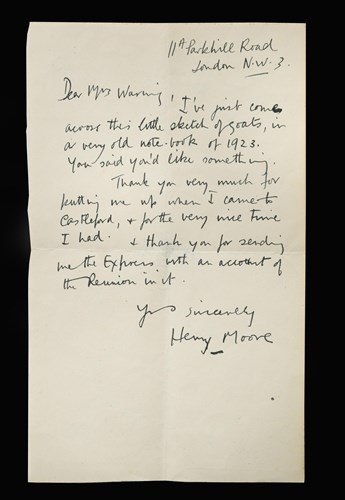 11A Parkhill Road
London N.W.3.
Dear Mrs Waring,
I've just come
across this little sketch of goats, in
a very old note-book of 1923.
You said you'd like something.
Thank you very much for
putting me up when I came to
Castleford, & for the very nice time
I had. & thank you for sending
me the Express, with an account of
the Reunion in it.
Yrs sincerely
Henry Moore